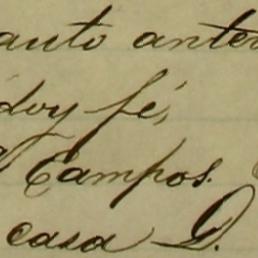 auto anter
doy fé,
Campos.
casa D.